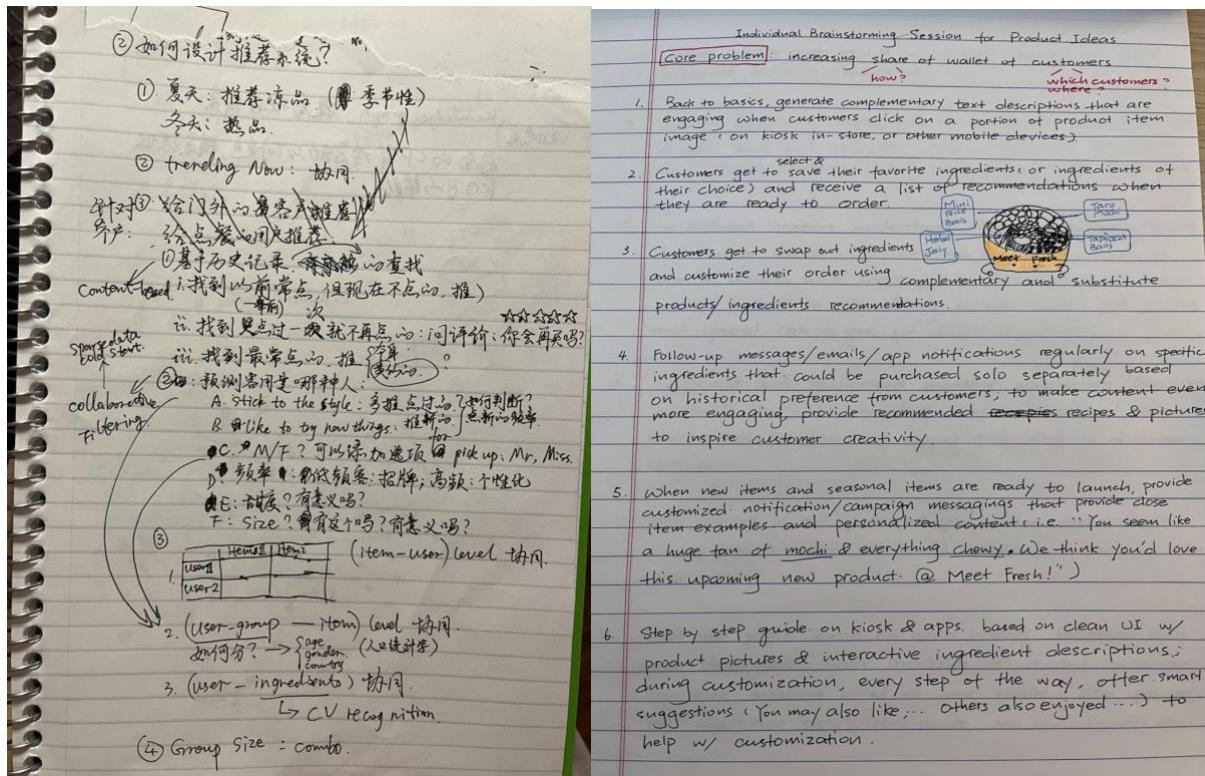 ② 如何设计推荐系统?
① 夏天: 推荐凉品 (季节性)
冬天: 热品
② trending Now: 协同
针对 ③ 给门外的客户推荐
客户: 给点餐的用户推荐
① 基于历史记录 的查找
content-based i. 找到以前常点, 但现在不点的, 推)
(一年前) 次
ii. 找到只点过一次就不再点的: 问评价: 你会再买吗?
☆☆☆☆☆
sparse data
cold start.
iii. 找到最常点的, 推
②: 预测客用是哪种人:
collaborative
Filtering
A. Stick to the style: 多推点过的? 如何判断?
B like to try new things: 推新的 点新的频率
C. M/F? 可以添加选项 for pick up: Mr, Miss.
D 频率: 低频客: 招牌; 高频: 个性化
E: 甜度? 有意义吗?
F: Size? 有这个吗? 有意义吗?
③
Item1 Item2
1. User1
User2
(item-user) level 协同.
2. (User-group — item) level 协同.
如何分? → age gender country (人口统计学)
3. (user - ingredients) 协同.
↳ CV recognition.
④ Group Size = combo.
Individual Brainstorming Session for Product Ideas
Core problem: increasing share of wallet of customers
how? which customers?
where?
1. Back to basics, generate complementary text descriptions that are
engaging when customers click on a portion of product item
image (on kiosk in-store, or other mobile devices).
select &
2. Customers get to save their favorite ingredients (or ingredients of
their choice) and receive a list of recommendations when
they are ready to order.
Mini Rice Balls
Taro Mochi
Herbal Jelly
Tapioca Balls
Meet Fresh
3. Customers get to swap out ingredients
and customize their order using complementary and substitute
products/ingredients recommendations.
4. Follow-up messages/emails/app notifications regularly on specific
ingredients that could be purchased solo separately based
on historical preference from customers; to make content even
more engaging, provide recommended recipes & pictures
to inspire customer creativity.
5. When new items and seasonal items are ready to launch, provide
customized notification/campaign messagings that provide close
item examples and personalized content (i.e. "You seem like
a huge fan of mochi & everything chewy. We think you'd love
this upcoming new product @ Meet Fresh!")
6. Step by step guide on kiosk & apps. based on clean UI w/
product pictures & interactive ingredient descriptions;
during customization, every step of the way, offer smart
suggestions (You may also like;... others also enjoyed ...) to
help w/ customization.